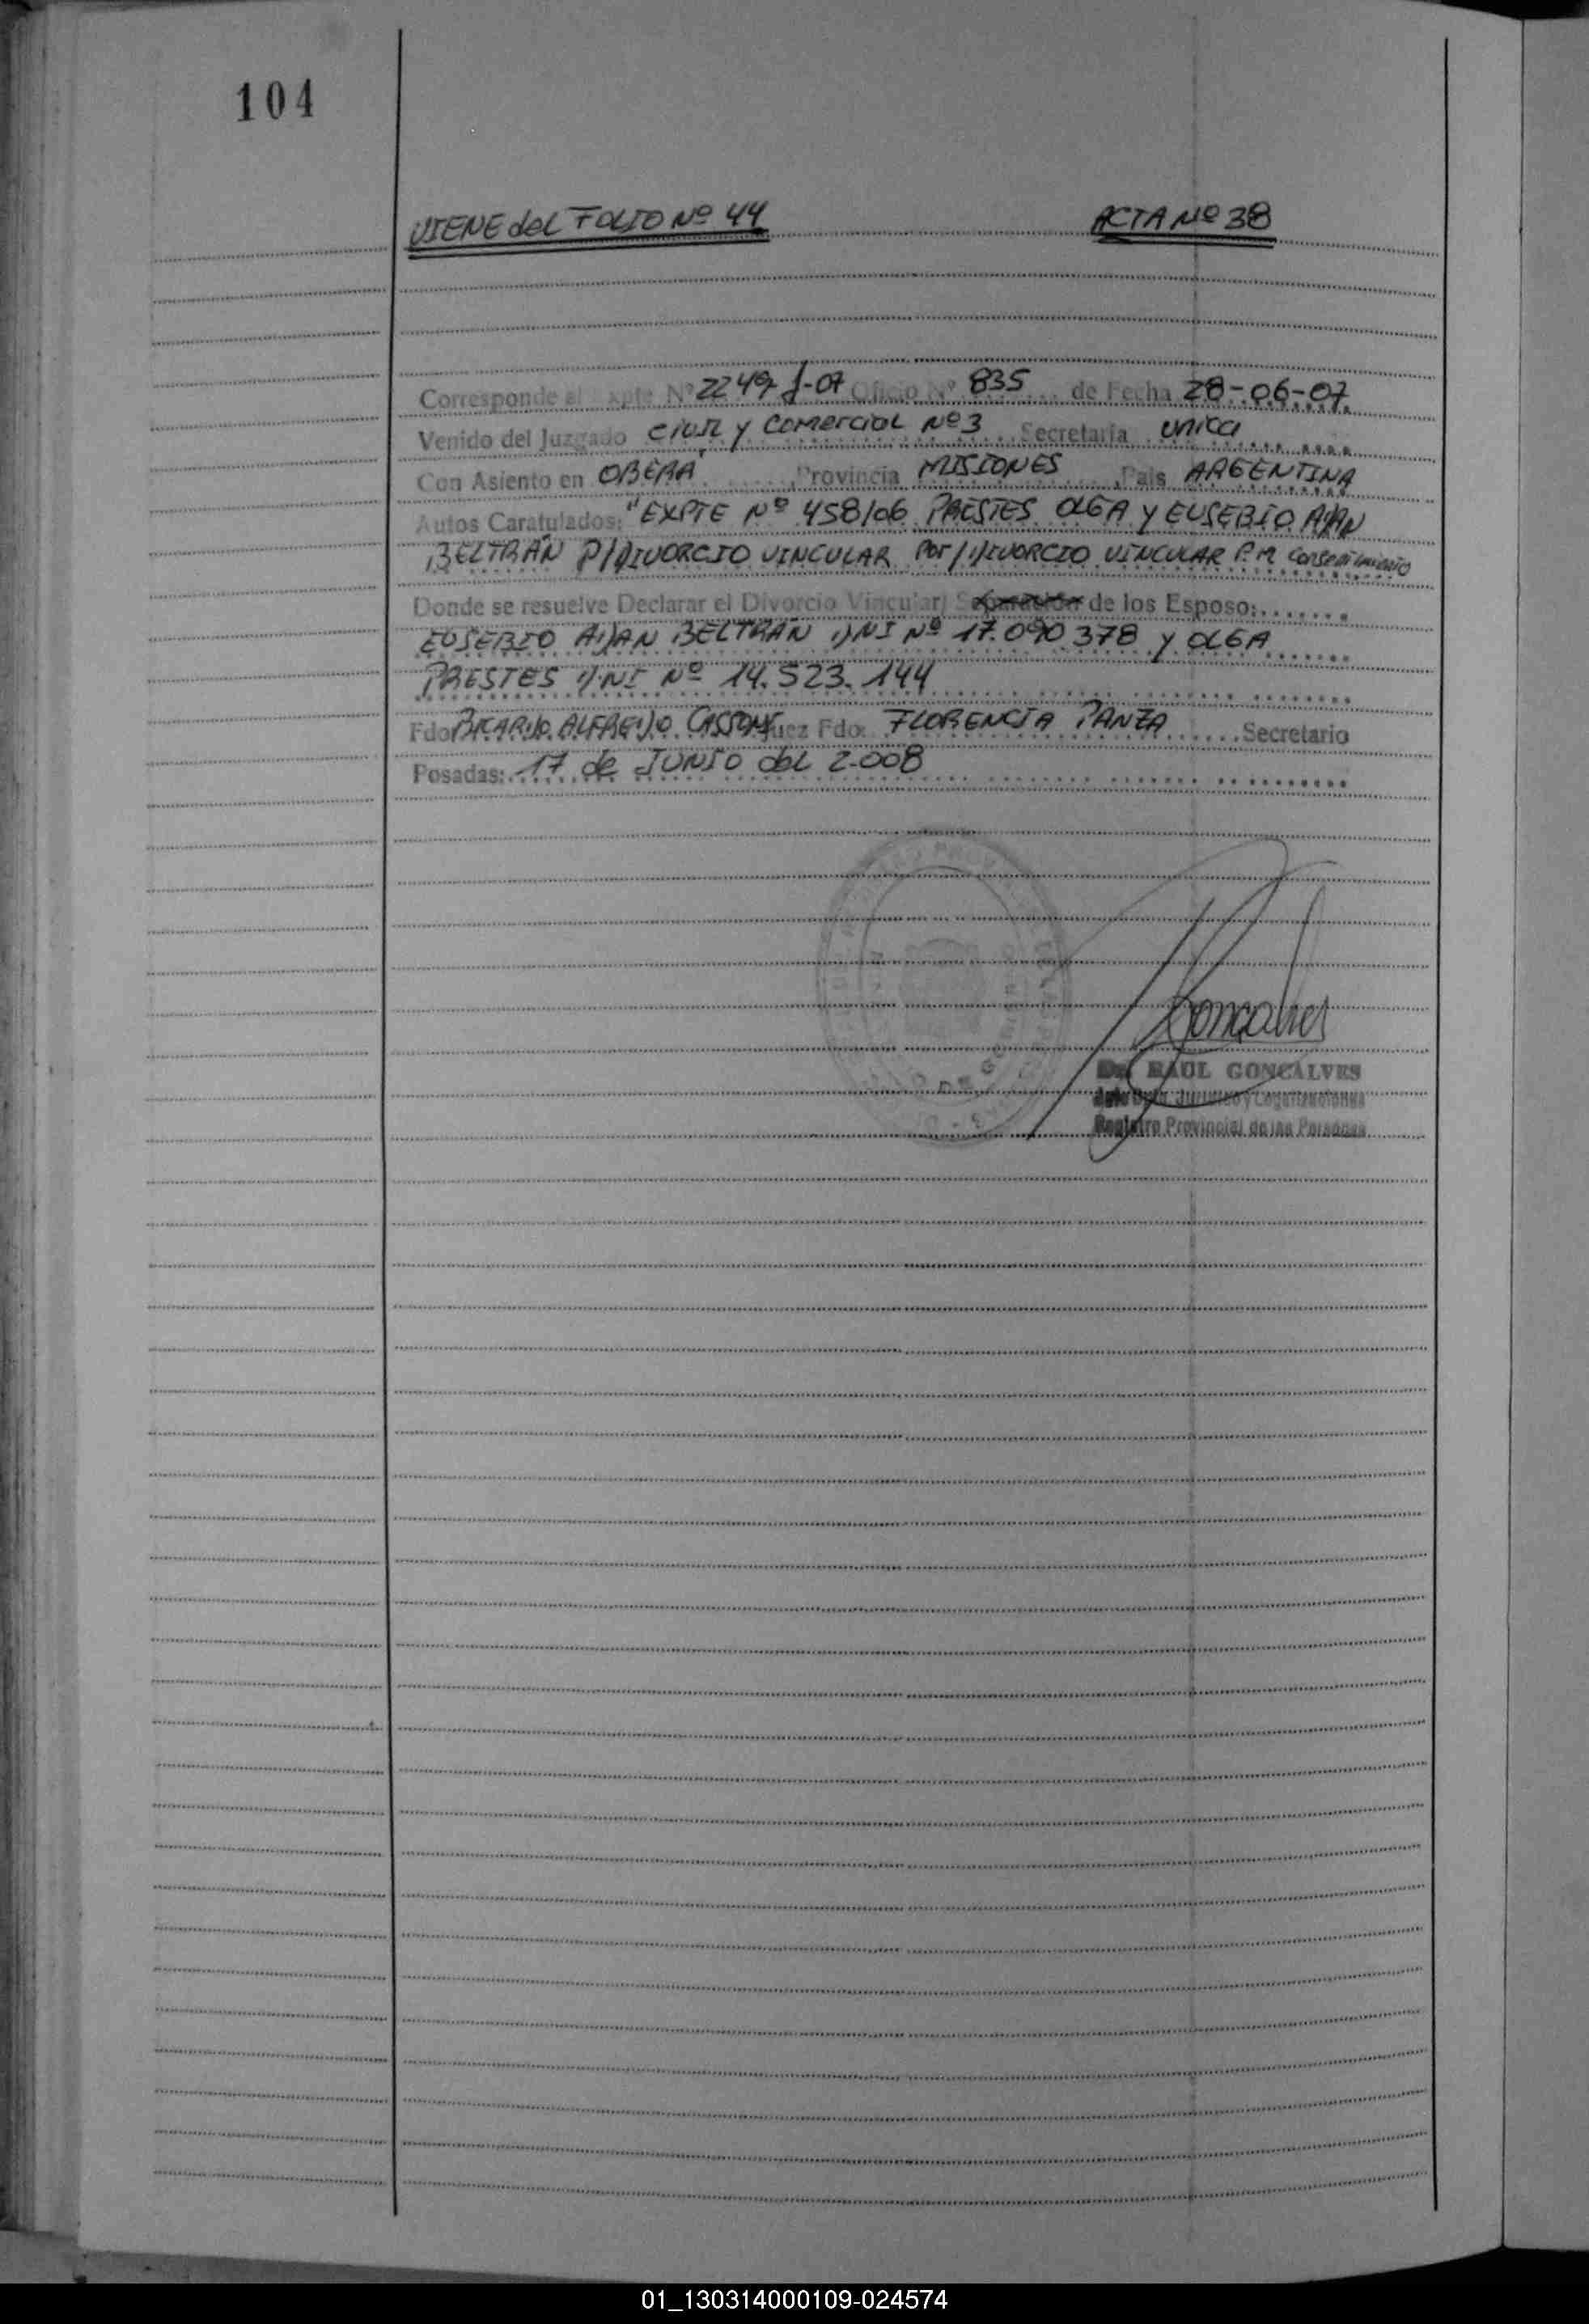 104
VIENE del FOLIO Nº 44 ACTA Nº 38
Corresponde al Expte Nº 2249 J-07 Oficio Nº 835 de Fecha 28-06-07
Venido del Juzgado CIVIL y COMERCIAL Nº 3 Secretaría UNICA
Con Asiento en OBERÁ, Provincia MISIONES, País ARGENTINA
Autos Caratulados: "EXPTE Nº 458/06 PRESTES OLGA Y EUSEBIO ADAN
BELTRÁN P/DIVORCIO VINCULAR Por/DIVORCIO VINCULAR P.M. Consentimiento
Donde se resuelve Declarar el Divorcio Vincular/ Separación de los Esposo:
EUSEBIO ADAN BELTRÁN DNI Nº 17.090 378 y OLGA
PRESTES D.NI Nº 14.523.144
Fdo RICARDO ALFREDO CASSONI Juez Fdo: FLORENCIA PANZA Secretario
Posadas: 17 de JUNIO del 2.008
Goncalves
Dr. RAUL GONCALVES
Registro Provincial de las Personas
01_130314000109-024574